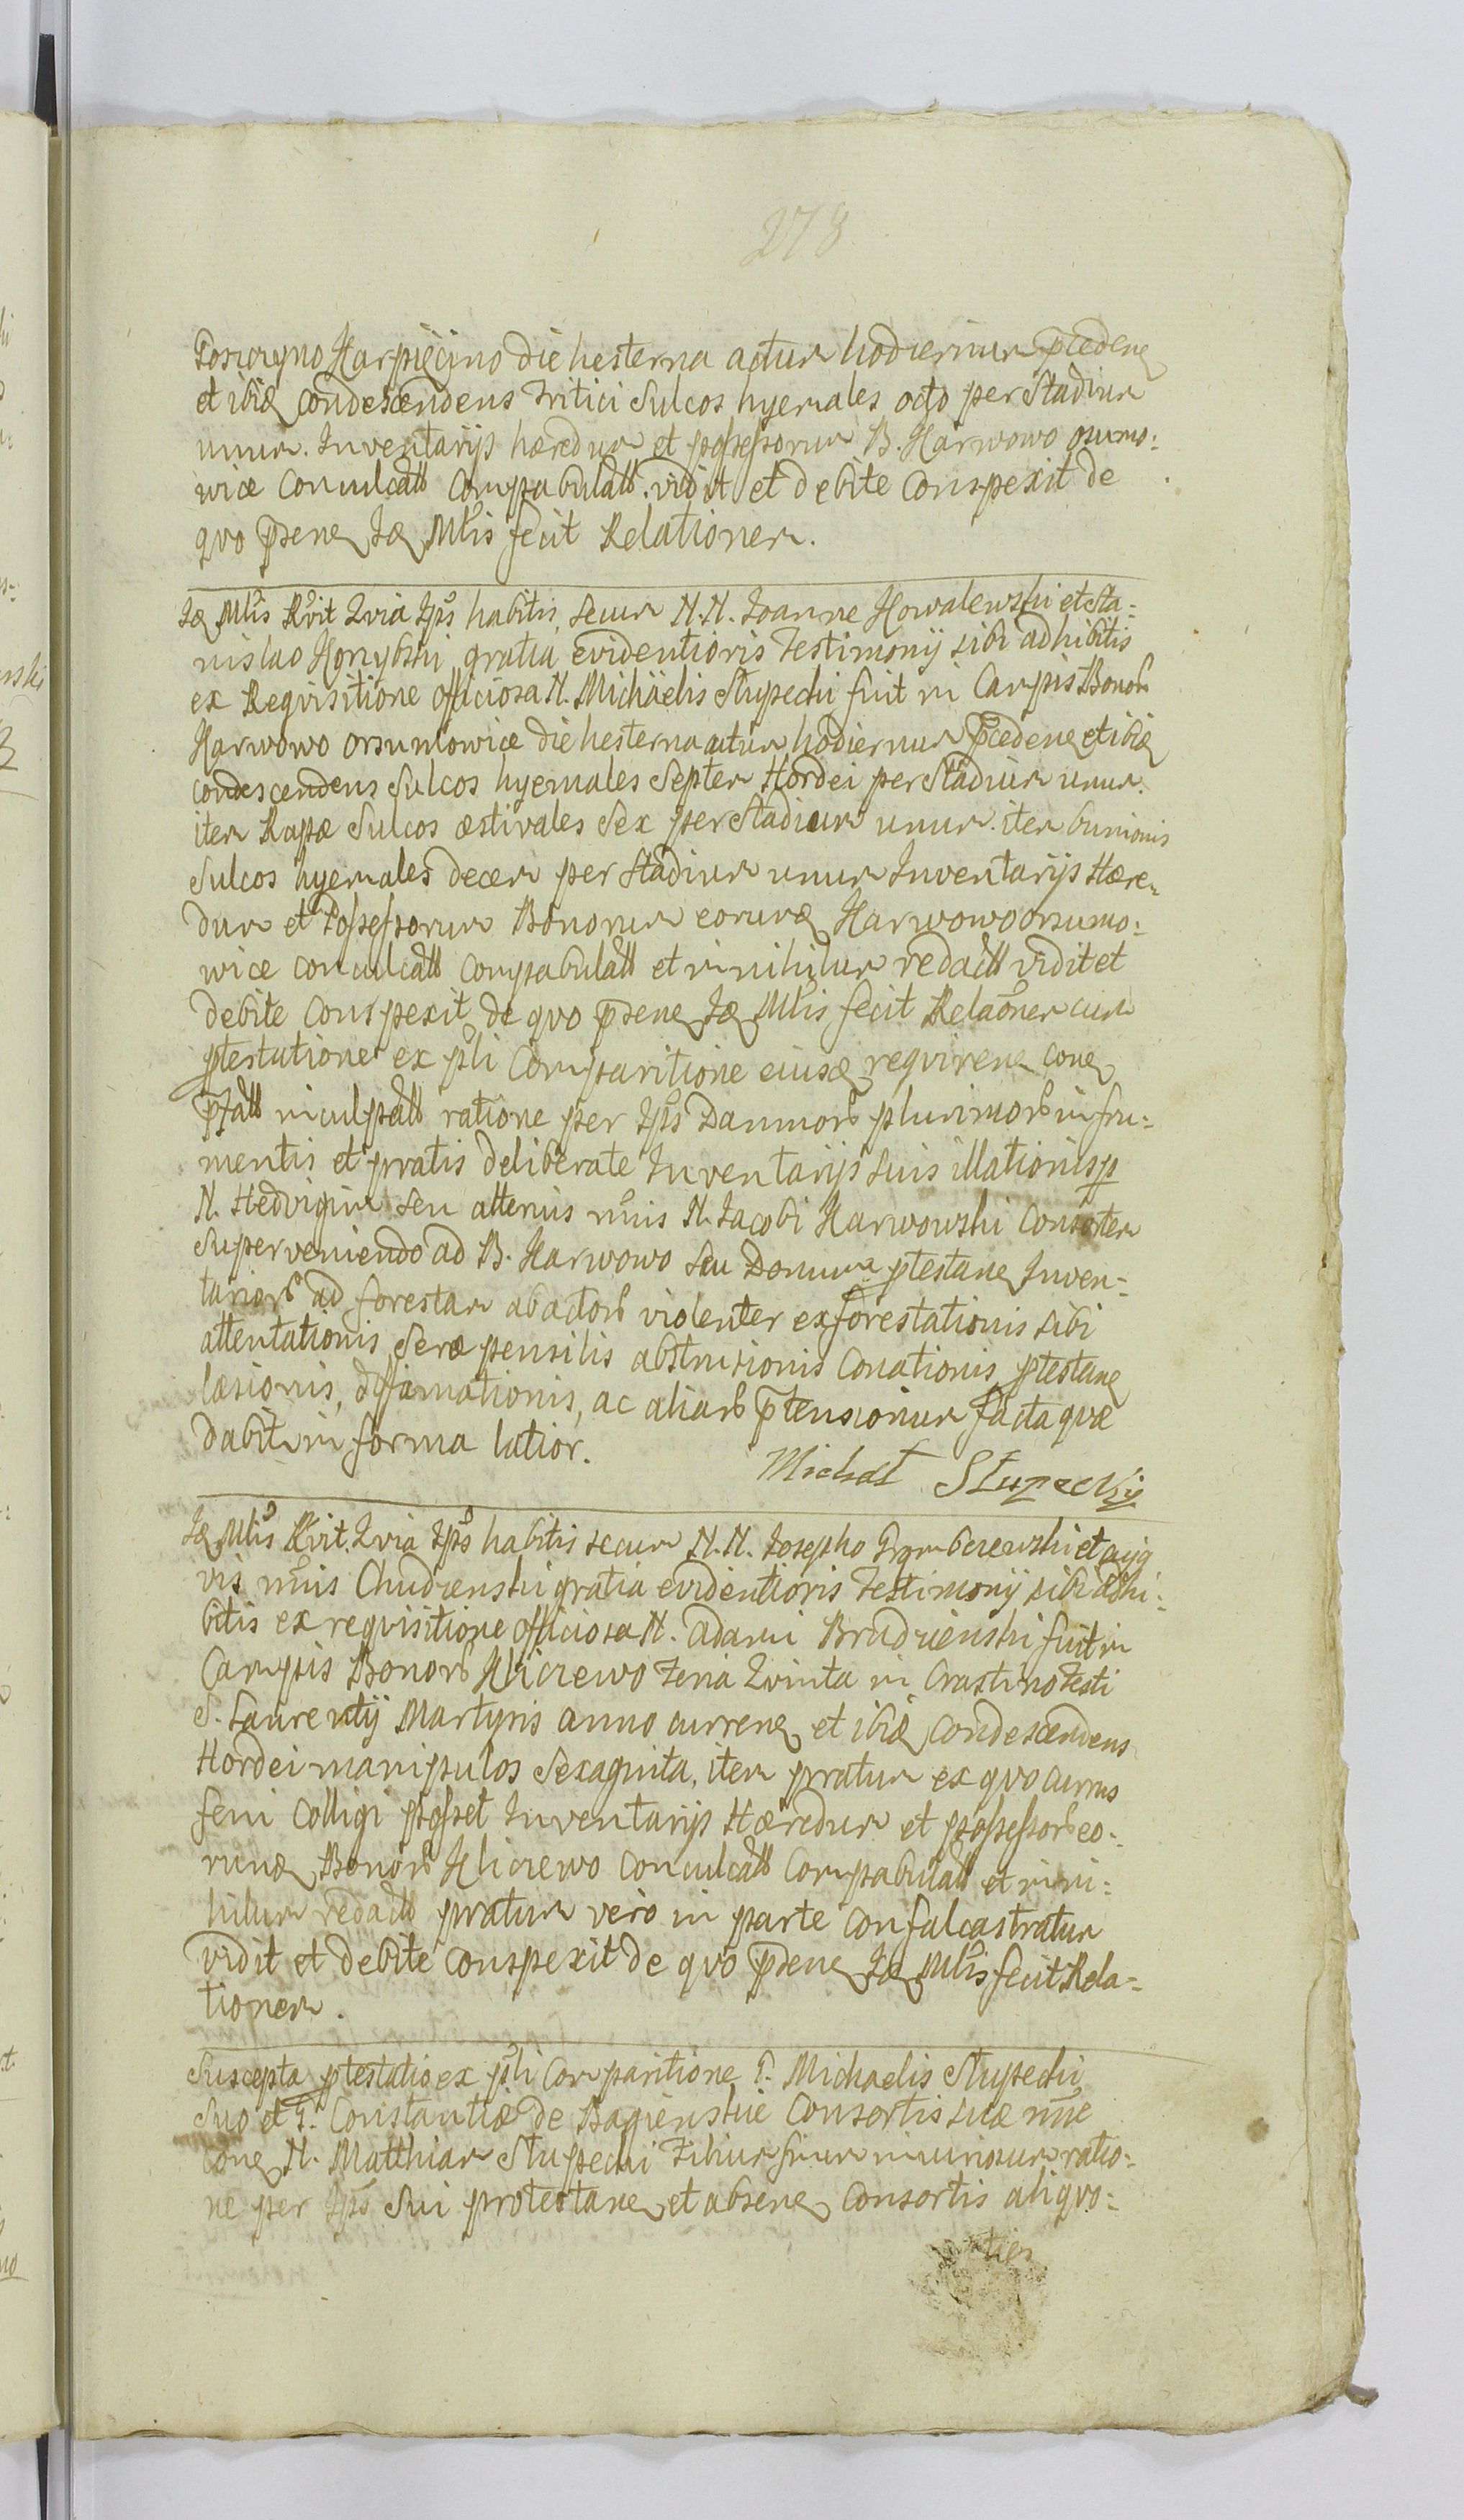 278
Karpięcino die hesterna actum hodiernum pcedene
et ibid condescendens Tritici Sulcos hyemales octo per Stadium
unum. Inventarijs haeredum et possessorum B. Karwowo orsumo:
wice conculcatt compabulatt. vidit et debite conspexit de
qvo psene Jd Mtris fecit Relationem.
Jd Mtris Rvit Qvia Jps habitis secum N. N. Joanne Kowalewski et Sta:
nislao gratia evidentioris Testimonij sibi adhibitis
ex Reqvisitione officiosa N. Michäelis Słupecki fuit in Campis Bonorb
Karwowo orsumowice die hesterna actum hodiernum pcedene et ibid
condescendens Sulcos hyemales Septem Hordei per Stadium unum.
item Rapæ Sulcos æstivales Sex per Stadium unum. item bunionis
Sulcos hyemales decem per Stadium unum Inventarijs Hære
dum et Possessorum Bonorum eorund Karwowo orsumo:
wice conculcatt compabulatt et in nihilum redactt vidit et
debite conspexit de qvo psene Jd Mtris fecit Relaonem cum
ptestatione ex psli Comparitione eiusd reqvirene cone
pfatt inculpatt ratione per Jps Damnorb plurimorb in fru:
mentis et pratis deliberate Inventarijs suis illationis p
N. Hedvigim seu alterius nuis N. Jacobi Karwowski Consortem
Superveniendo ad B. Karwowo seu Domum ptestane Inven:
tariorb ad forestam abactorb violenter exforestationis sibi
attentationis Seræ pensilis abstrusionis Conationis ptestane
læsionis, diffamationis, ac aliarb ptensionum facta qvæ
dabit in forma latior.
Michał Słupecky
Jd Mtris Rvit. Qvia Jps habitis secum N. N. Josepho et cujq
vis nuis Chudzenski gratia evidentioris Testimonij sibi adhi:
bitis ex reqvisitione officiosa N. Adami Brudzienski fuit in
Campis Bonorb Kliczewo Feria Qvinta in Crastino Festi
S. Laurentij Martyris anno currene et ibid condescendens
Hordei manipulos Sexaginta, item pratum ex qvo currus
feni colligi posset Inventarijs Hæredum et possessorb eo:
rund Bonorb Kliczewo conculcatt Compabulatt et in ni:
hilum redactt pratum vero in parte confalcastratum
vidit et debite conspexit de qvo psene Jd Mtris fecit Rela:
tionem.
Suscepta ptestatio ex psli Comparitione G. Michaelis Słupecki
Suo et G. Constantiæ de Bagienskie Consortis suæ nne
Cone N. Matthiam Słupecki Filium suum iniuriosum ratio:
ne per Jps Sui protestane et absene Consortis aliqvo:
ties